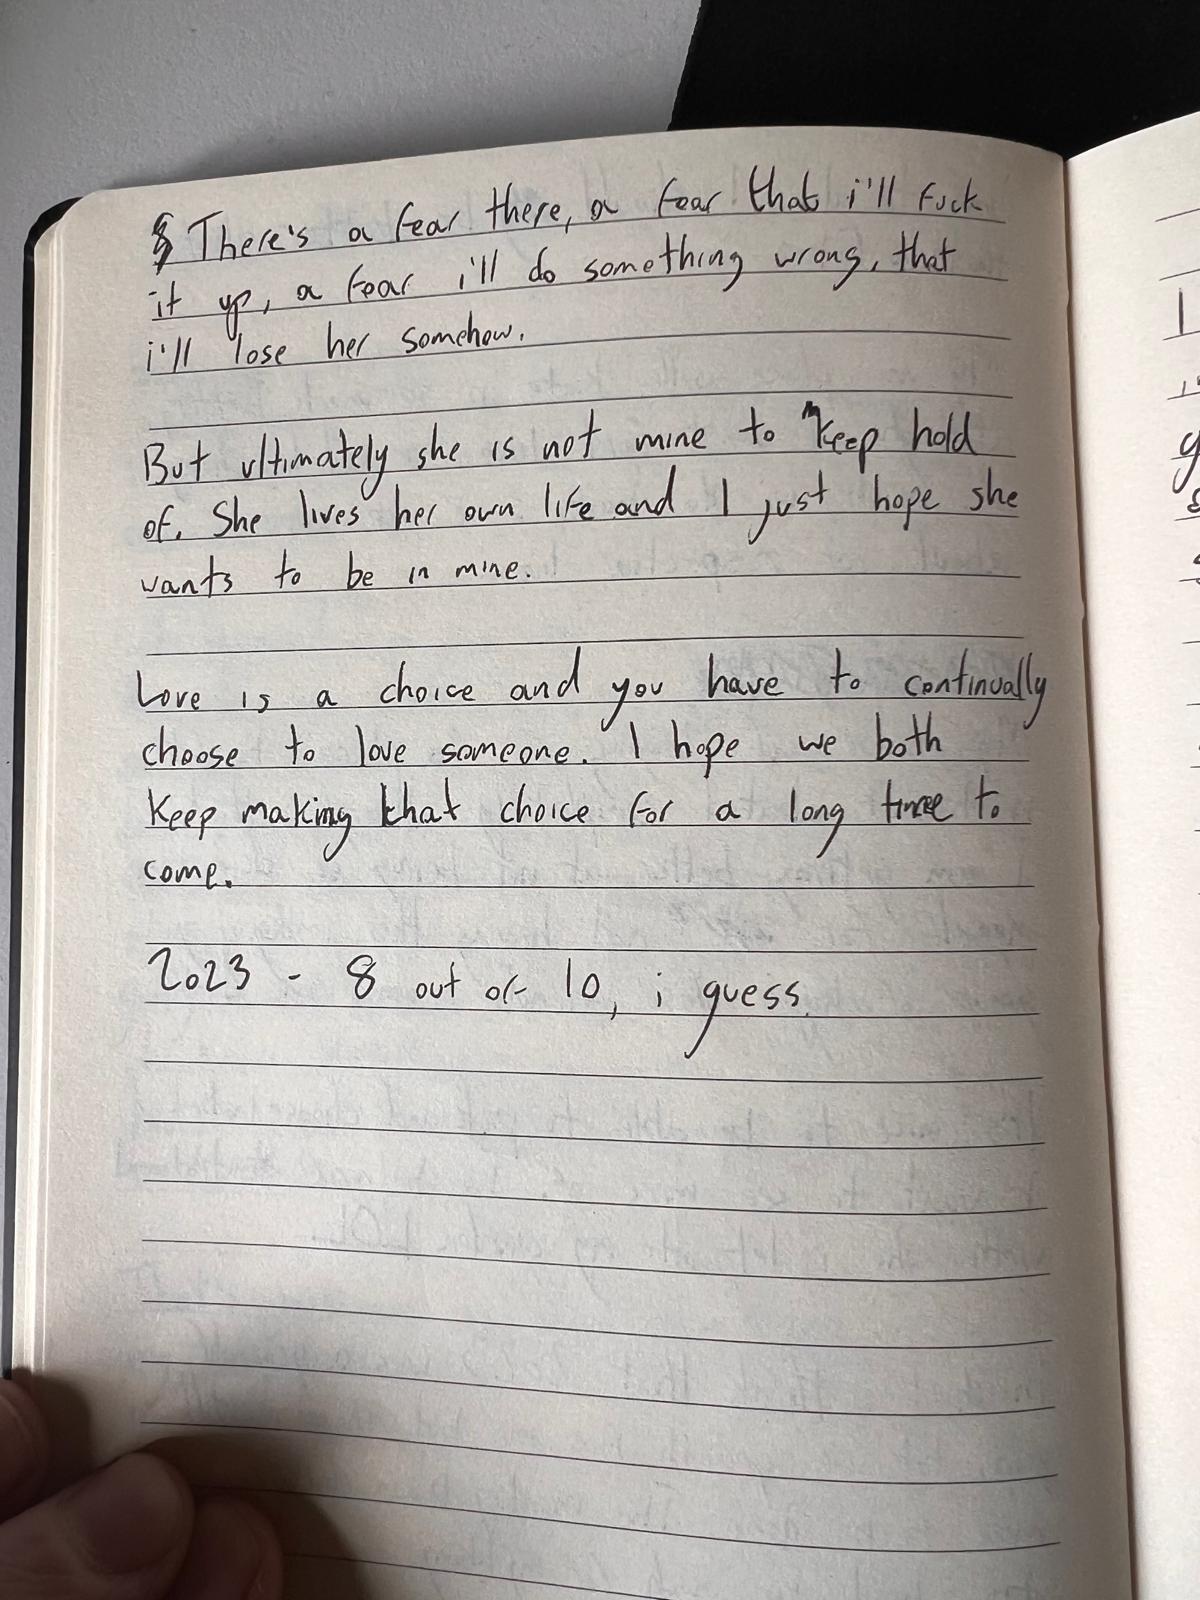 There's a fear there, a fear that i'll fuck
it up, a fear i'll do something wrong, that
i'll lose her somehow.
But ultimately she is not mine to keep hold
of. She lives her own life and I just hope she
wants to be in mine.
Love is a choice and you have to continually
choose to love someone. I hope we both
keep making that choice for a long time to
come.
2023 - 8 out of 10, i guess.